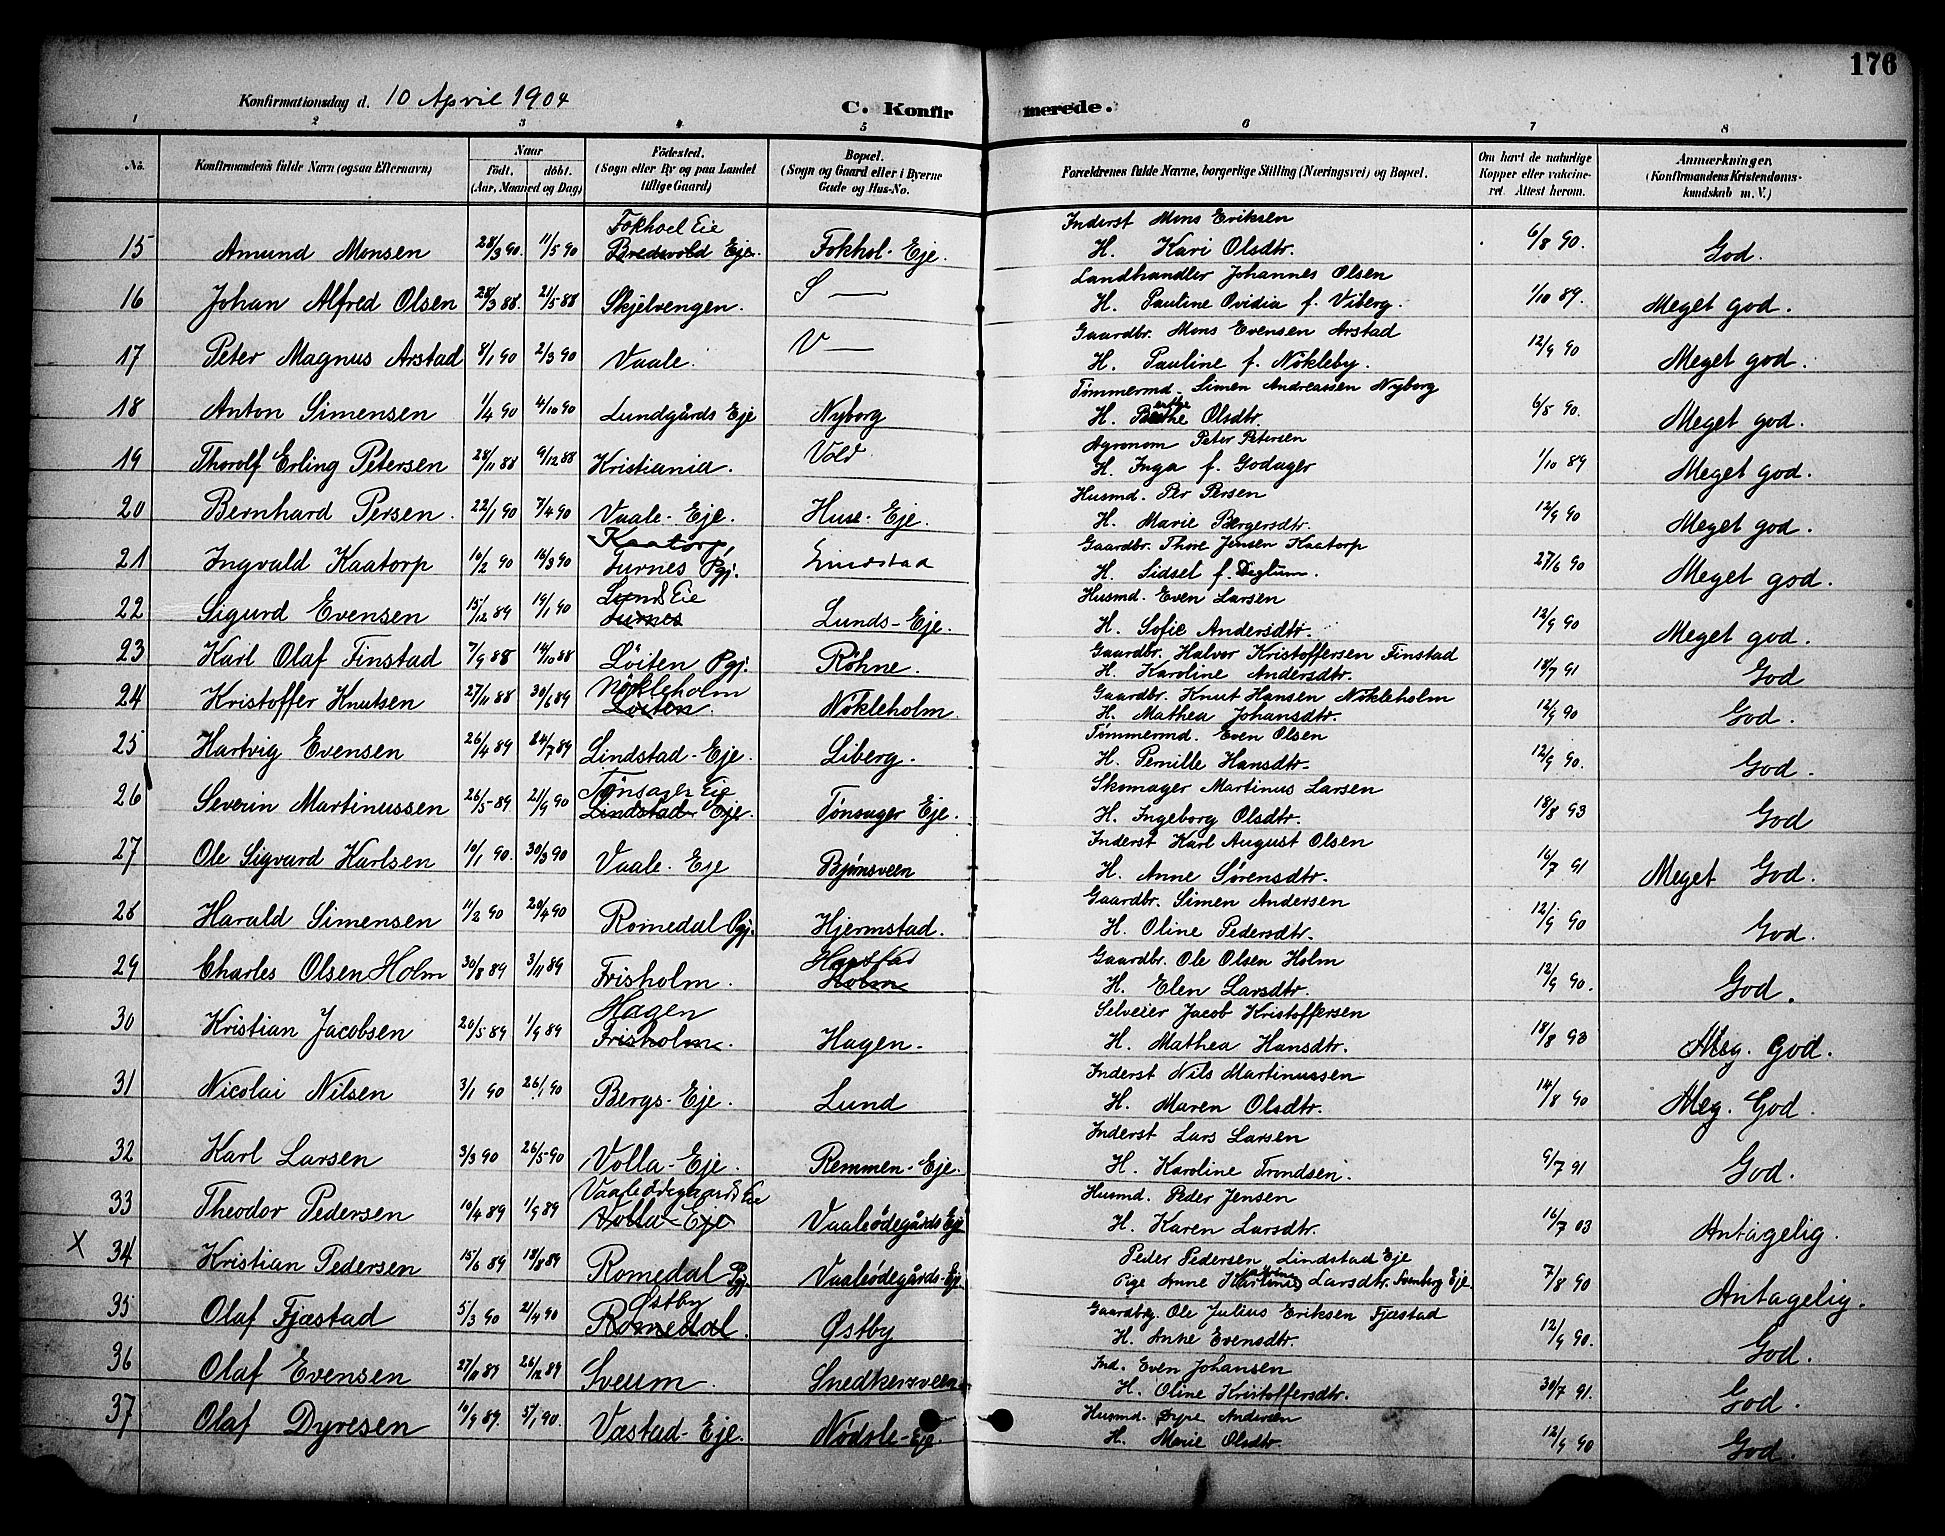 176
Konfirmationsdag d. 10 April 1904 C. Konfirmerede.
1 2 3 4 5 6 7 8
No. Konfirmandens fulde Navn (ogsaa Efternavn) Naar Født. døbt. (Aar, Maaned og Dag) Fødested. (Sogn eller By og paa Landet tillige Gaard) Bopæl. (Sogn og Gaard eller i Byerne Gade og Hus-No. Forældrenes fulde Navne, borgerlige Stilling (Næringsvei) og Bopæl. Om havt de naturlige Kopper eller vakcineret. Attest herom. Anmærkninger. (Konfirmandens Kristendomskundskab m. V.)
Fokhoel Eie Inderst Mons Eriksen
15 Amund Monsen 28/3 90. 11/5 90 Bredsvold Eje. Fokhol-Eje. H. Kari Olsdtr. 6/8 90. God.
Landhandler Johannes Olsen
16 Johan Alfred Olsen 28/3 88. 21/5 88 Skjelvengen. S — H. Pauline Ovidia f. Viberg. 1/10 89. Meget god.
Gaardbr. Mons Evensen Arstad
17 Peter Magnus Arstad 8/1 90 2/3 90 Vaale. V — H. Pauline f. Nökleby. 12/9 90 Meget god.
Tømmermd. Simen Andreassen Nyborg
18 Anton Simensen 1/4 90 4/10 90 Lundgårds Eje Nyborg H. Berthe Olsdtr. 6/8 90. Meget god.
Agronom Peter Petersen
19 Thorolf Erling Petersen 28/11 88 9/12 88 Kristiania. Vold H. Inga f. Godager 1/10 89 Meget god.
Husmd. Per Persen
20 Bernhard Persen. 22/1 90 7/4 90 Vaale-Eje. Huse-Eje. H. Marie Bergersdtr. 12/9 90 Meget god.
Kaatorp, Gaardbr. Thore Jensen Kaatorp
21 Ingvald Kaatorp 10/2 90 16/3 90 Furnes Pgj. Lindstad H. Sidsel f. Deglum. 27/6 90 Meget god.
Lunds Eie Husmd. Even Larsen
22 Sigurd Evensen 15/12 89 19/1 90 Furnes Lunds-Eje. H. Sofie Andersdtr. 12/9 90 Meget god.
Gaardbr. Halvor Kristoffersen Finstad
23 Karl Olaf Finstad 7/9 88 14/10 88 Löiten Pgj. Röhne. H. Karoline Andersdtr. 18/7 91 God
Nökleholm Gaardbr. Knut Hansen Nökleholm
24 Kristoffer Knutsen 27/11 88 30/6 89 Löiten. Nökleholm. H. Mathea Johansdtr. 12/9 90 God.
Tømmermd. Even Olsen
25 Hartvig Evensen 26/4 89 24/7 89 Lindstad-Eje. Liberg. H. Pernille Hansdtr. 12/9 90. God.
Tønsager Eie Skomager Martinus Larsen
26 Severin Martinussen 26/5 89 21/9 90 Lindstad Eje. Tønsager Eje. H. Ingeborg Olsdtr. 18/8 93 God
Inderst Karl August Olsen
27 Ole Sigvard Karlsen 10/1 90. 30/3 90 Vaale-Eje Bjønsveen H. Anne Sørensdtr. 16/7 91 Meget God.
Gaardbr. Simen Andersen
28 Harald Simensen 11/2 90 20/4 90 Romedal Pgj. Hjermstad. H. Oline Pedersdtr. 12/9 90 God.
Gaardbr. Ole Olsen Holm
29 Charles Olsen Holm 30/8 89 3/11 89 Frisholm. Holm H. Elen Larsdtr. 12/9 90. God.
Hagen Selveier Jacob Kristoffersen
30 Kristian Jacobsen 20/5 89 1/9 89 Frisholm. Hagen. H. Mathea Hansdtr. 18/8 93 Meg. God.
Inderst Nils Martinussen
31 Nicolai Nilsen 3/1 90 26/1 90 Bergs-Eje. Lund H. Maren Olsdtr. 14/8 90 Meg. God.
Inderst Lars Larsen
32 Karl Larsen 3/3 90 26/5 90 Volla-Eje. Remmen-Eje. H. Karoline Trondsen. 9/7 91 God.
Vaaleødegaards Eie Husmd. Peder Jensen
33 Theodor Pedersen 10/4 89 1/9 89 Volla-Eje Vaaleødegårds Eje H. Karen Larsdtr. 16/7 03 Antagelig.
Peder Pedersen Lindstad Eje
X 34 Kristian Pedersen 15/6 89 18/8 89 Romedal Pgj. Vaaleødegårds-Eje Pige Anne Larsdtr. Svenberg Eje. 7/8 90 Antagelig.
Østby Gaardbrg. Ole Julius Eriksen Fjæstad
35 Olaf Fjæstad 5/3 90 21/4 90 Romedal. Østby H. Anne Evensdtr. 12/9 90. God.
Ind. Even Johansen
36 Olaf Evensen 27/11 89 26/12 89 Sveum. Snedkersveen H. Oline Kristoffersdtr. 30/7 91. God.
Husmd. Dyre Andersen
37 Olaf Dyresen 10/9 89. 5/1 90. Vastad-Eje. Nödsle-Eje. H. Marie Olsdtr. 12/9 90 God.